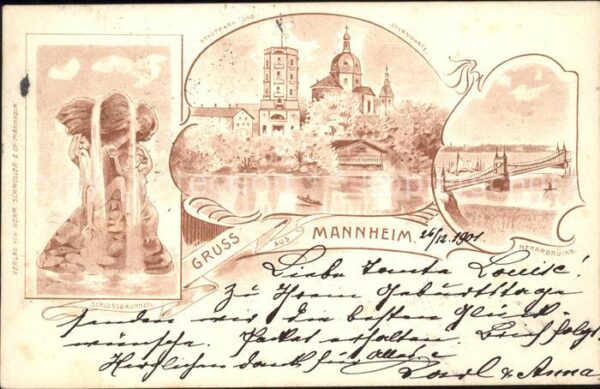 STADTPARK UND STERNWARTE.
VERLAG VON HERM. SCHMOLLER & CO. MANNHEIM.
SCHLOSSBRUNNEN.
GRUSS AUS MANNHEIM.
NEKARBRÜCKE.
26/12. 1901
Liebe Tante Louise!
Zu Ihrem Geburtstage
senden wir die besten Glück-
wünsche. Packet erhalten. Brief folgt.
Herzlichen dank für Alles.
Carl & Anna